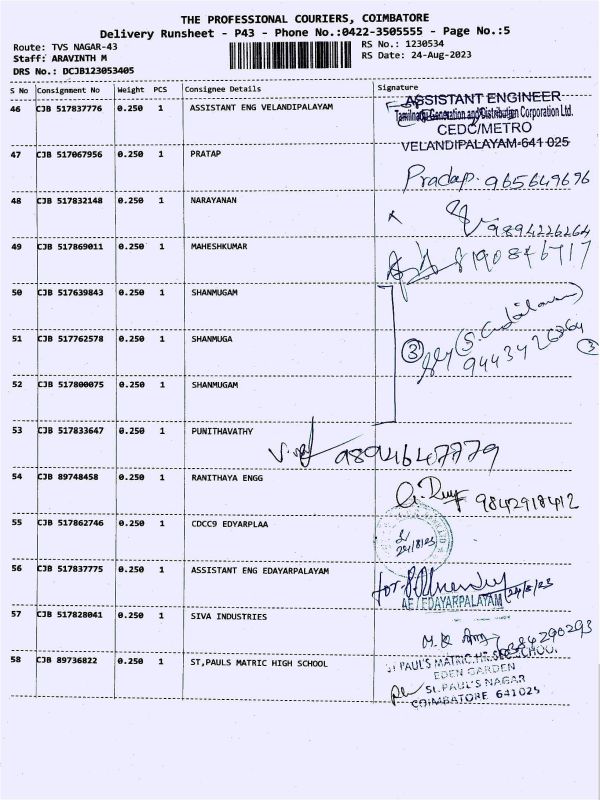 THE PROFESSIONAL COURIERS, COIMBATORE
Delivery Runsheet - P43 - Phone No.:0422-3505555 - Page No.:5
Route: TVS NAGAR-43 RS No.: 1230534
Staff: ARAVINTH M RS Date: 24-Aug-2023
DRS No.: DCJB123053405
S No Consignment No Weight PCS Consignee Details Signature
46 CJB 517837776 0.250 1 ASSISTANT ENG VELANDIPALAYAM
ASSISTANT ENGINEER
Tamilnadu Generation and Distribution Corporation Ltd.
CEDC/METRO
VELANDIPALAYAM-641 025
47 CJB 517067956 0.250 1 PRATAP
Pradap. 965649696
48 CJB 517832148 0.250 1 NARAYANAN
9894226264
49 CJB 517869011 0.250 1 MAHESHKUMAR
50 CJB 517639843 0.250 1 SHANMUGAM
51 CJB 517762578 0.250 1 SHANMUGA
3 3
9443426264
52 CJB 517800075 0.250 1 SHANMUGAM
53 CJB 517833647 0.250 1 PUNITHAVATHY
54 CJB 89748458 0.250 1 RANITHAYA ENGG
9842918412
55 CJB 517862746 0.250 1 CDCC9 EDYARPLAA
24/8/23
56 CJB 517837775 0.250 1 ASSISTANT ENG EDAYARPALAYAM
for
24/8/23
AE / EDAYARPALAYAM
57 CJB 517828041 0.250 1 SIVA INDUSTRIES
58 CJB 89736822 0.250 1 ST,PAULS MATRIC HIGH SCHOOL
ST PAUL'S MATRIC.HR.SEC.SCHOOL
EDEN GARDEN
ST.PAUL'S NAGAR
COIMBATORE 641025